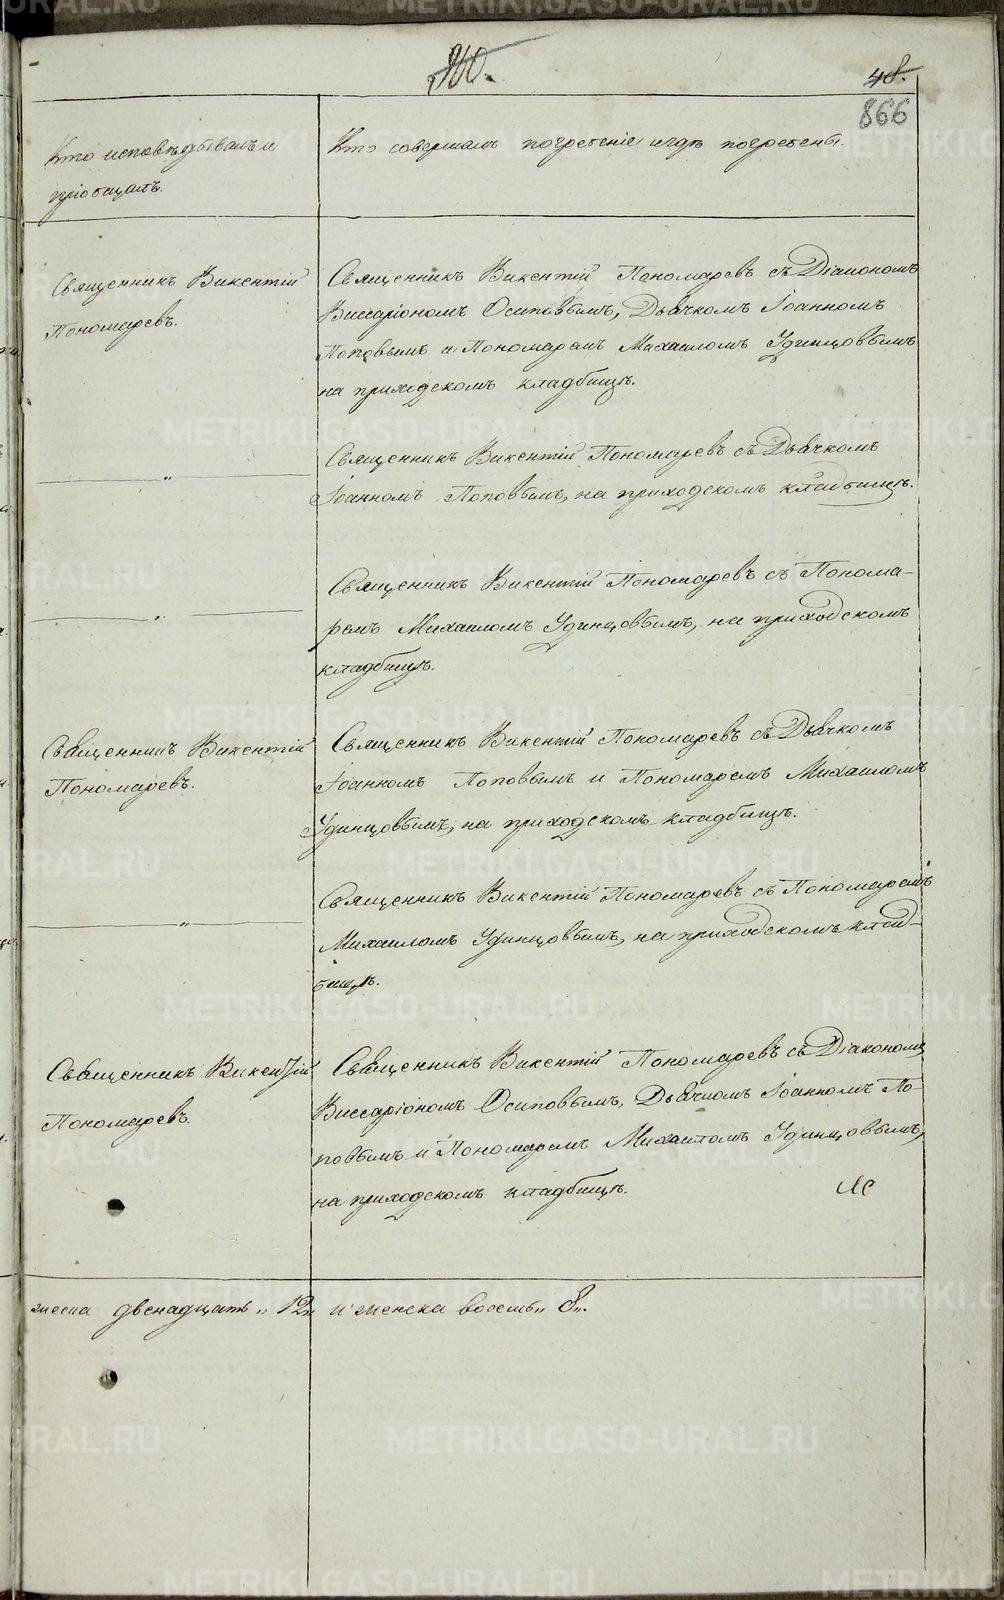 48.
866
Кто исповѣдывалъ и
пріобщалъ.
Кто совершалъ погребеніе и гдѣ погребены.
Священникъ Викентій
Пономаревъ.
Священникъ Викентій Пономаревъ съ Діакономъ
Виссаріономъ Осиповымъ, Дьячкомъ Іоанномъ
Поповымъ и Пономаремъ Михаиломъ Удинцовымъ
на приходскомъ кладбищѣ.
„
Священникъ Викентій Пономаревъ съ Дьячкомъ
Іоанномъ Поповымъ, на приходскомъ кладбищѣ.
„
Священникъ Викентій Пономаревъ съ Понома-
ремъ Михаиломъ Удинцовымъ, на приходскомъ
кладбищѣ.
Священникъ Викентій
Пономаревъ.
Священникъ Викентій Пономаревъ съ Дьячкомъ
Іоанномъ Поповымъ и Пономаремъ Михаиломъ
Удинцовымъ, на приходскомъ кладбищѣ.
„
Священникъ Викентій Пономаревъ съ Пономаремъ
Михаиломъ Удинцовымъ, на приходскомъ клад-
бищѣ.
Священникъ Викентій
Пономаревъ.
Священникъ Викентій Пономаревъ съ Діакономъ
Виссаріономъ Осиповымъ, Дьячкомъ Іоанномъ По-
повымъ и Пономаремъ Михаиломъ Удинцовымъ,
на приходскомъ кладбищѣ.
двенадцать „ 12„ и женска восемь „ 8„.
METRIKI.GASO-URAL.RU